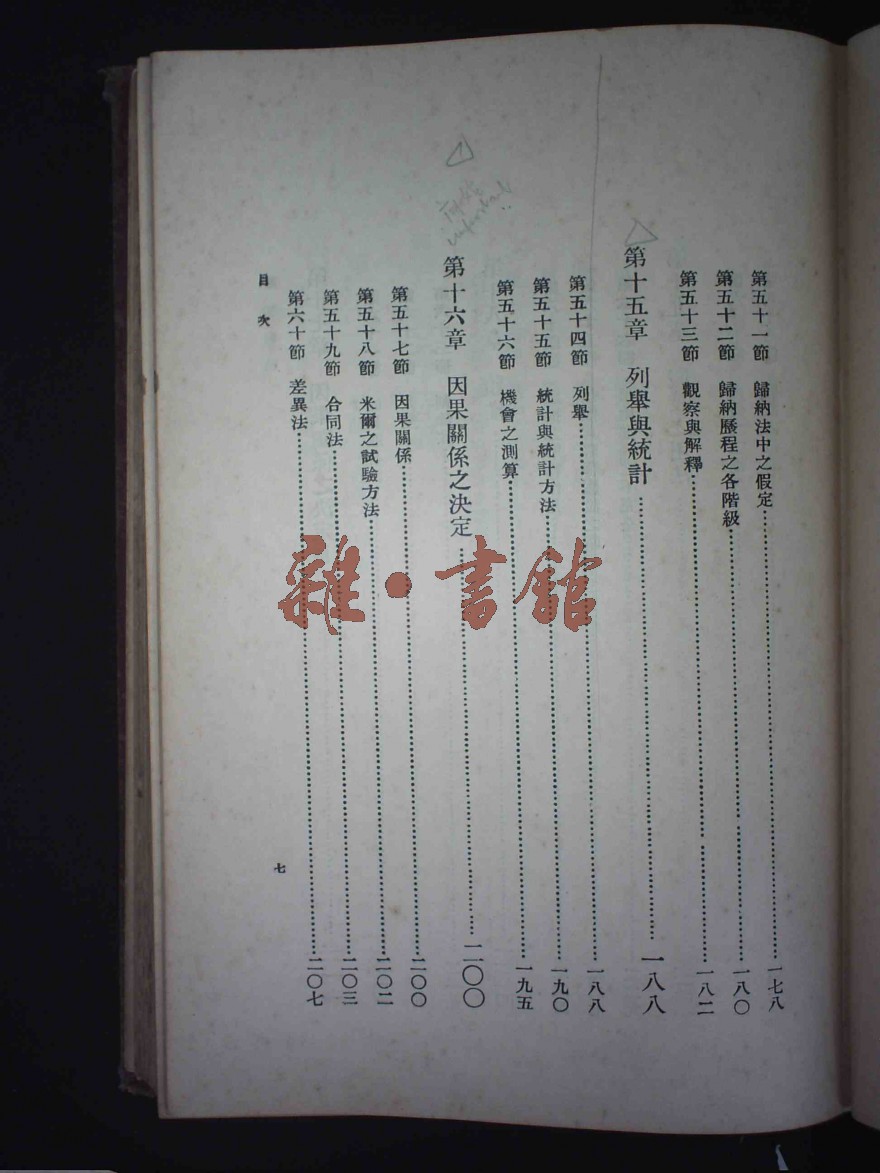 第五十一節 歸納法中之假定……一七八
第五十二節 歸納歷程之各階級……一八〇
第五十三節 觀察與解釋……一八二
第十五章 列舉與統計……一八八
第五十四節 列舉……一八八
第五十五節 統計與統計方法……一九〇
第五十六節 機會之測算……一九五
第十六章 因果關係之決定……二〇〇
第五十七節 因果關係……二〇〇
第五十八節 米爾之試驗方法……二〇二
第五十九節 合同法……二〇三
第六十節 差異法……二〇七
目次
七
雜·書館